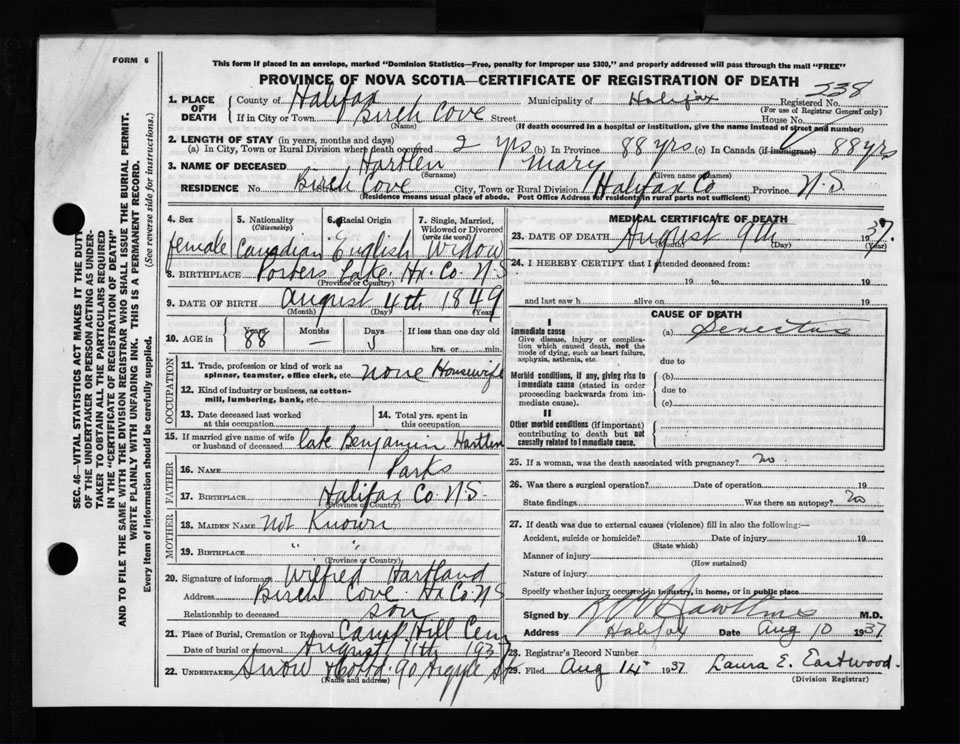 FORM 6
This form if placed in an envelope, marked "Dominion Statistics—Free, penalty for improper use $300," and properly addressed will pass through the mail "FREE"
PROVINCE OF NOVA SCOTIA—CERTIFICATE OF REGISTRATION OF DEATH
238
1. PLACE OF DEATH
County of Halifax Municipality of Halifax Registered No.
(For use of Registrar General only)
If in City or Town Birch Cove Street House No.
(Name) (If death occurred in a hospital or institution, give the name instead of street and number)
2. LENGTH OF STAY (in years, months and days)
(a) In City, Town or Rural Division where death occurred 2 yrs (b) In Province 88 yrs (c) In Canada (if immigrant) 88 yrs
3. NAME OF DECEASED Hartlen Mary
(Surname) (Given name or names)
RESIDENCE No. Birch Cove City, Town or Rural Division Halifax Co Province N.S.
(Residence means usual place of abode. Post Office Address for residents in rural parts not sufficient)
4. Sex
female
5. Nationality
(Citizenship)
Canadian
6. Racial Origin
English
7. Single, Married, Widowed or Divorced
(write the word)
Widow
8. BIRTHPLACE Porters Lake Hx. Co. N-S
(Province or Country)
9. DATE OF BIRTH August 4th 1849
(Month) (Day) (Year)
10. AGE in Years Months Days If less than one day old
88 — 5 hrs. or min.
OCCUPATION
11. Trade, profession or kind of work as
spinner, teamster, office clerk, etc. none Housewife
12. Kind of industry or business, as cotton-
mill, lumbering, bank, etc.
13. Date deceased last worked
at this occupation
14. Total yrs. spent in
this occupation
15. If married give name of wife
or husband of deceased late Benjamin Hartlen
FATHER
16. NAME Parks
17. BIRTHPLACE Halifax Co. N-S.
(Province or Country)
MOTHER
18. MAIDEN NAME Not Known
19. BIRTHPLACE " "
(Province or Country)
20. Signature of informant Wilfred Hartland
Address Birch Cove Hx Co N-S
Relationship to deceased son
21. Place of Burial, Cremation or Removal Camp Hill Cem
Date of burial or removal August 11th 1937
22. UNDERTAKER Snow & Co Ltd. 90 Argyle St
(Name and address)
MEDICAL CERTIFICATE OF DEATH
23. DATE OF DEATH August 9th 1937
(Month) (Day) (Year)
24. I HEREBY CERTIFY that I attended deceased from:
19 to 19
and last saw h alive on 19
CAUSE OF DEATH
I
Immediate cause (a) Senectus
Give disease, injury or complica-
tion which caused death, not the
mode of dying, such as heart failure,
asphyxia, asthenia, etc. due to
Morbid conditions, if any, giving rise to (b)
immediate cause (stated in order due to
proceeding backwards from im-
mediate cause). (c)
II
Other morbid conditions (if important)
contributing to death but not
causally related to immediate cause.
25. If a woman, was the death associated with pregnancy? no.
26. Was there a surgical operation? Date of operation 19
State findings Was there an autopsy? no
27. If death was due to external causes (violence) fill in also the following:—
Accident, suicide or homicide? Date of injury 19
(State which)
Manner of injury
(How sustained)
Nature of injury
Specify whether injury occurred in industry, in home, or in public place
Signed by M.D.
Address Halifax Date Aug 10 1937
28. Registrar's Record Number
29. Filed Aug 14 1937 Laura E. Eastwood.
(Division Registrar)
SEC. 46—VITAL STATISTICS ACT MAKES IT THE DUTY
OF THE UNDERTAKER OR PERSON ACTING AS UNDER-
TAKER TO OBTAIN ALL THE PARTICULARS REQUIRED
IN THE "CERTIFICATE OF REGISTRATION OF DEATH"
AND TO FILE THE SAME WITH THE DIVISION REGISTRAR WHO SHALL ISSUE THE BURIAL PERMIT.
WRITE PLAINLY WITH UNFADING INK. THIS IS A PERMANENT RECORD.
Every item of information should be carefully supplied. (See reverse side for instructions.)